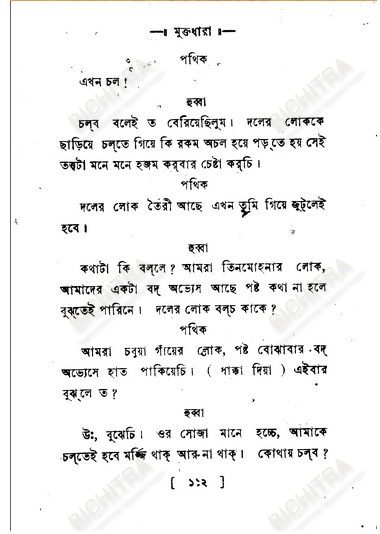 —॥ মুক্তধারা ॥—
পথিক
এখন চল !
হুব্বা
চল্‌ব বলেই ত বেরিয়েছিলুম। দলের লোককে
ছাড়িয়ে চল্‌তে গিয়ে কি রকম অচল হয়ে পড়্‌তে হয় সেই
তত্ত্বটা মনে মনে হজম কর্‌বার চেষ্টা কর্‌চি।
পথিক
দলের লোক তৈরী আছে এখন তুমি গিয়ে জুট্‌লেই
হবে।
হুব্বা
কথাটা কি বল্‌লে ? আমরা তিনমোহনার লোক,
আমাদের একটা বদ্ অভ্যেস আছে পষ্ট কথা না হলে
বুঝ্‌তেই পারিনে। দলের লোক বল্‌চ কাকে ?
পথিক
আমরা চবুয়া গাঁয়ের লোক, পষ্ট বোঝাবার বদ্
অভ্যেসে হাত পাকিয়েচি। ( ধাক্কা দিয়া ) এইবার
বুঝ্‌লে ত ?
হুব্বা
উঃ, বুঝেচি। ওর সোজা মানে হচ্চে, আমাকে
চল্‌তেই হবে মর্জ্জি থাক্ আর না থাক্। কোথায় চল্‌ব ?
[ ১১২ ]
BICHITRA